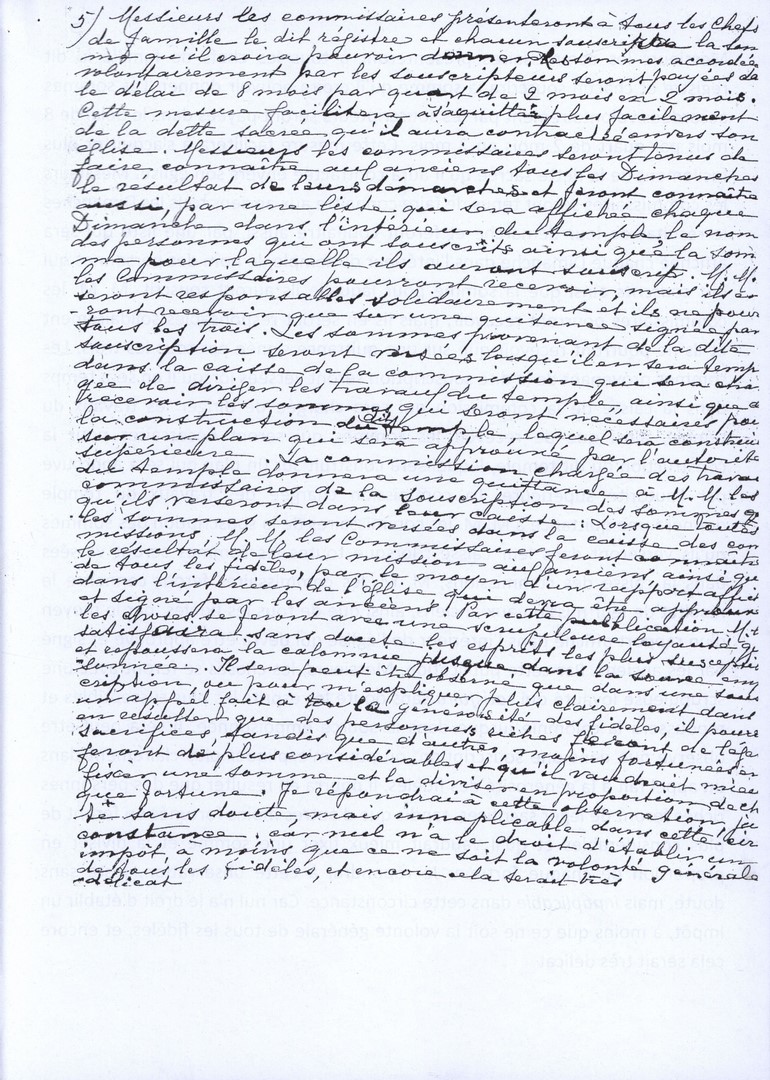 5) Messieurs les commissaires présenteront à tous les Chefs
de famille le dit régistre et chacun souscripra la som
me qu'il croira pouvoir donner. Les sommes accordée
volontairement par les souscripteurs seront payées da
le délai de 8 mois par quart de 2 mois en 2 mois.
Cette mesure facilitera à s'aquitter plus facilement
de la dette sacrée qu'il aura contractée envers son
église. Messieurs les commissaires seront tenus de
faire connaître aux anciens tous les Dimanches
le résultat de leurs démarches et feront connaître
aussi, par une liste qui sera affichée chaque
Dimanche dans l'intérieur du temple, le nom
des personnes qui ont souscrits ainsi que la som
me pour laquelle ils auront souscrit. M. M.
les Commissaires pourront recevoir, mais ils en
seront responsables solidairement et ils ne pour
ront recevoir que sur une quitance signée par
tous les trois. Les sommes provenant de la dite
souscription seront versées lorsqu'il en sera temp
dans la caisse de la commission qui sera char
gée de diriger les travaux du temple, ainsi que d
recevoir les sommes qui seront nécessaires pou
la construction du dit temple, lequel sera construi
sur un plan qui sera approuvé par l'autorité
supérieure. La commission chargée des travau
du temple donnera une quittance à M. M. les
commissaires de la souscription des sommes q
qu'ils verseront dans leur caisse. Lorsque toutes
les sommes seront versées dans la caisse des com
missions, M. M. les Commissaires feront connaître
le résultat de leur mission aux anciens, ainsi que
de tous les fidèles, par le moyen d'un rapport affic
dans l'intérieur de l'Eglise qui devra être approuvé
et signé par les anciens. Par cette publication M. t
les choses se feront avec une scrupuleuse loyauté q
satisfaira sans doute les esprits les plus suscepti
et repoussera la calomnie jusque dans la source em
Il sera peut être observé que dans une sous
cription ou pour m'expliquer plus clairement dans
un appel fait à la générosité des fidèles, il pourra
en résulter que des personnes riches feront de lége
sacrifices tandis que d'autres, moins fortunées en
feront de plus considérables et qu'il vaudrait mieu
fixer une somme et la diviser en proportion de ch
que fortune. Je répondrai à cette observation, ju
te sans doute, mais innaplicable dans cette cir
constance. car nul n'a le droit d'établir un
impôt, à moins que ce ne soit la volonté générale
de tous les fidèles, et encore cela serait très
délicat